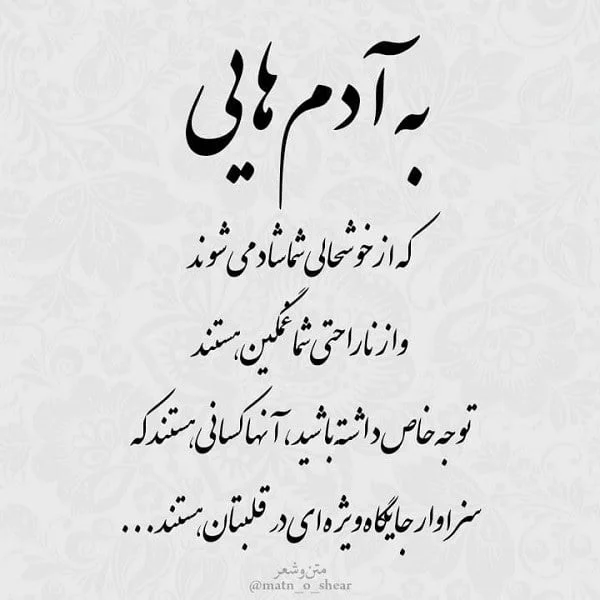 به آدم هایی
که از خوشحالی شما شاد می شوند
و از ناراحتی شما غمگین هستند
توجه خاص داشته باشید، آنها کسانی هستند که
سزاوار جایگاه ویژه ای در قلبتان هستند...
متن و شعر
@matn_o_shear